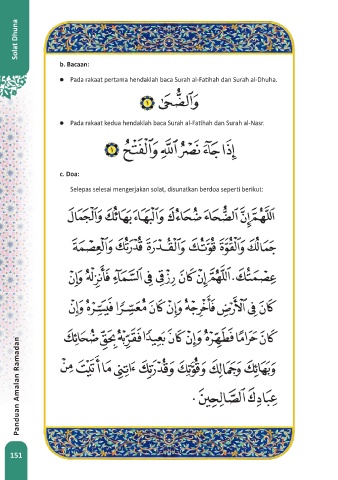 Solat Dhuna
b. Bacaan:
● Pada rakaat pertama hendaklah baca Surah al-Fatihah dan Surah al-Dhuha.
وَٱلضُّحَىٰ ١
● Pada rakaat kedua hendaklah baca Surah al-Fatihah dan Surah al-Nasr.
إِذَا جَآءَ نَصْرُ ٱللَّهِ وَٱلْفَتْحُ ١
c. Doa:
Selepas selesai mengerjakan solat, disunatkan berdoa seperti berikut:
اَللّٰهُمَّ إِنَّ الضُّحَاءَ ضُحَاءُكَ وَالْبَهَاءَ بَهَائُكَ وَالْجَمَالَ
جَمَالُكَ وَالْقُوَّةَ قُوَّتُكَ وَالْقُدْرَةَ قُدْرَتُكَ وَالْعِصْمَةَ
عِصْمَتُكَ. اَللّٰهُمَّ إِنْ كَانَ رِزْقِي فِي السَّمَآءِ فَأَنْزِلْهُ وَإِنْ
كَانَ فِي الْأَرْضِ فَأَخْرِجْهُ وَإِنْ كَانَ مُعَسَّرًا فَيَسِّرْهُ وَإِنْ
كَانَ حَرَامًا فَطَهِّرْهُ وَإِنْ كَانَ بَعِيدًا فَقَرِّبْهُ بِحَقِّ ضُحَائِكَ
وَبَهَائِكَ وَجَمَالِكَ وَقُوَّتِكَ وَقُدْرَتِكَ ءَاتِنِي مَا أَتَيْتَ مِنْ
عِبَادِكَ الصَّالِحِينَ .
Panduan Amalan Ramadan
151